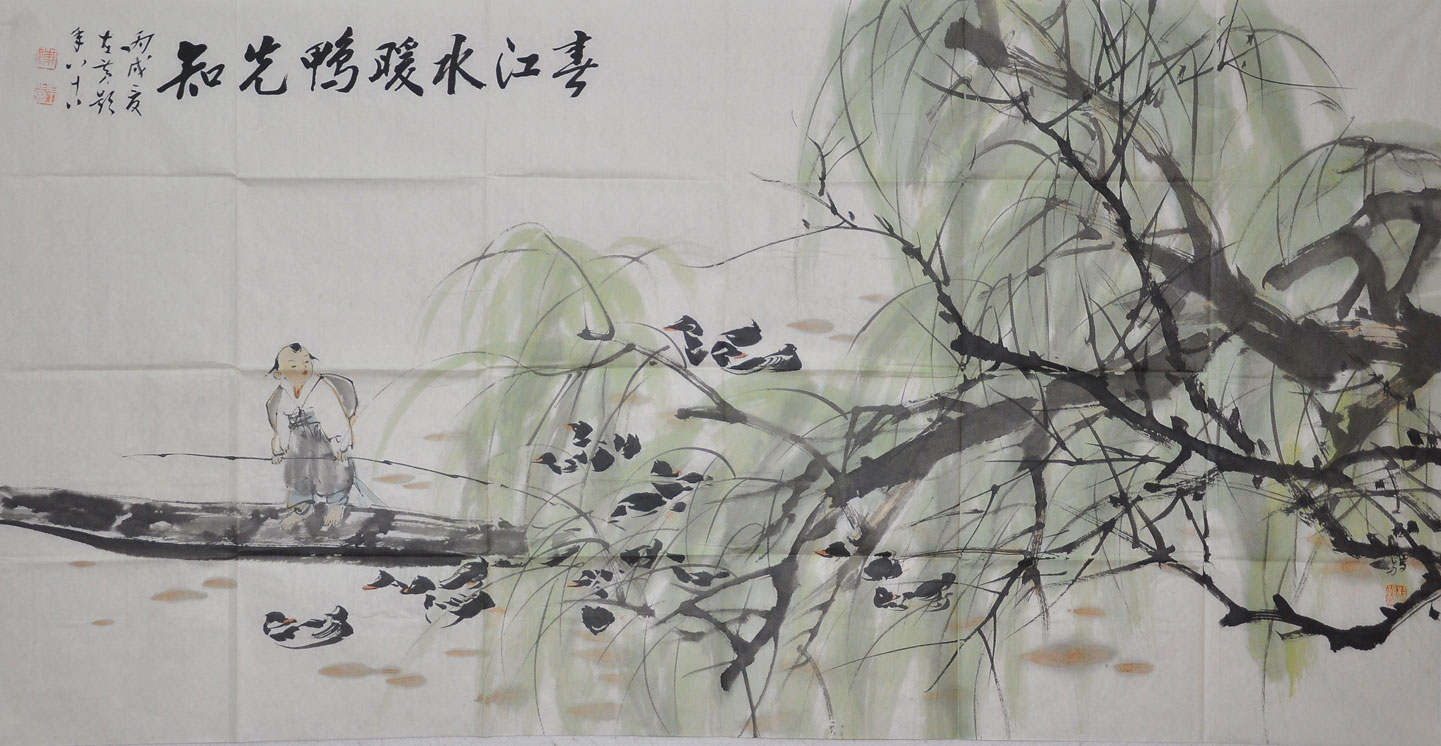 春江水暖鸭先知
丙戌夏
左黄题
年八十八